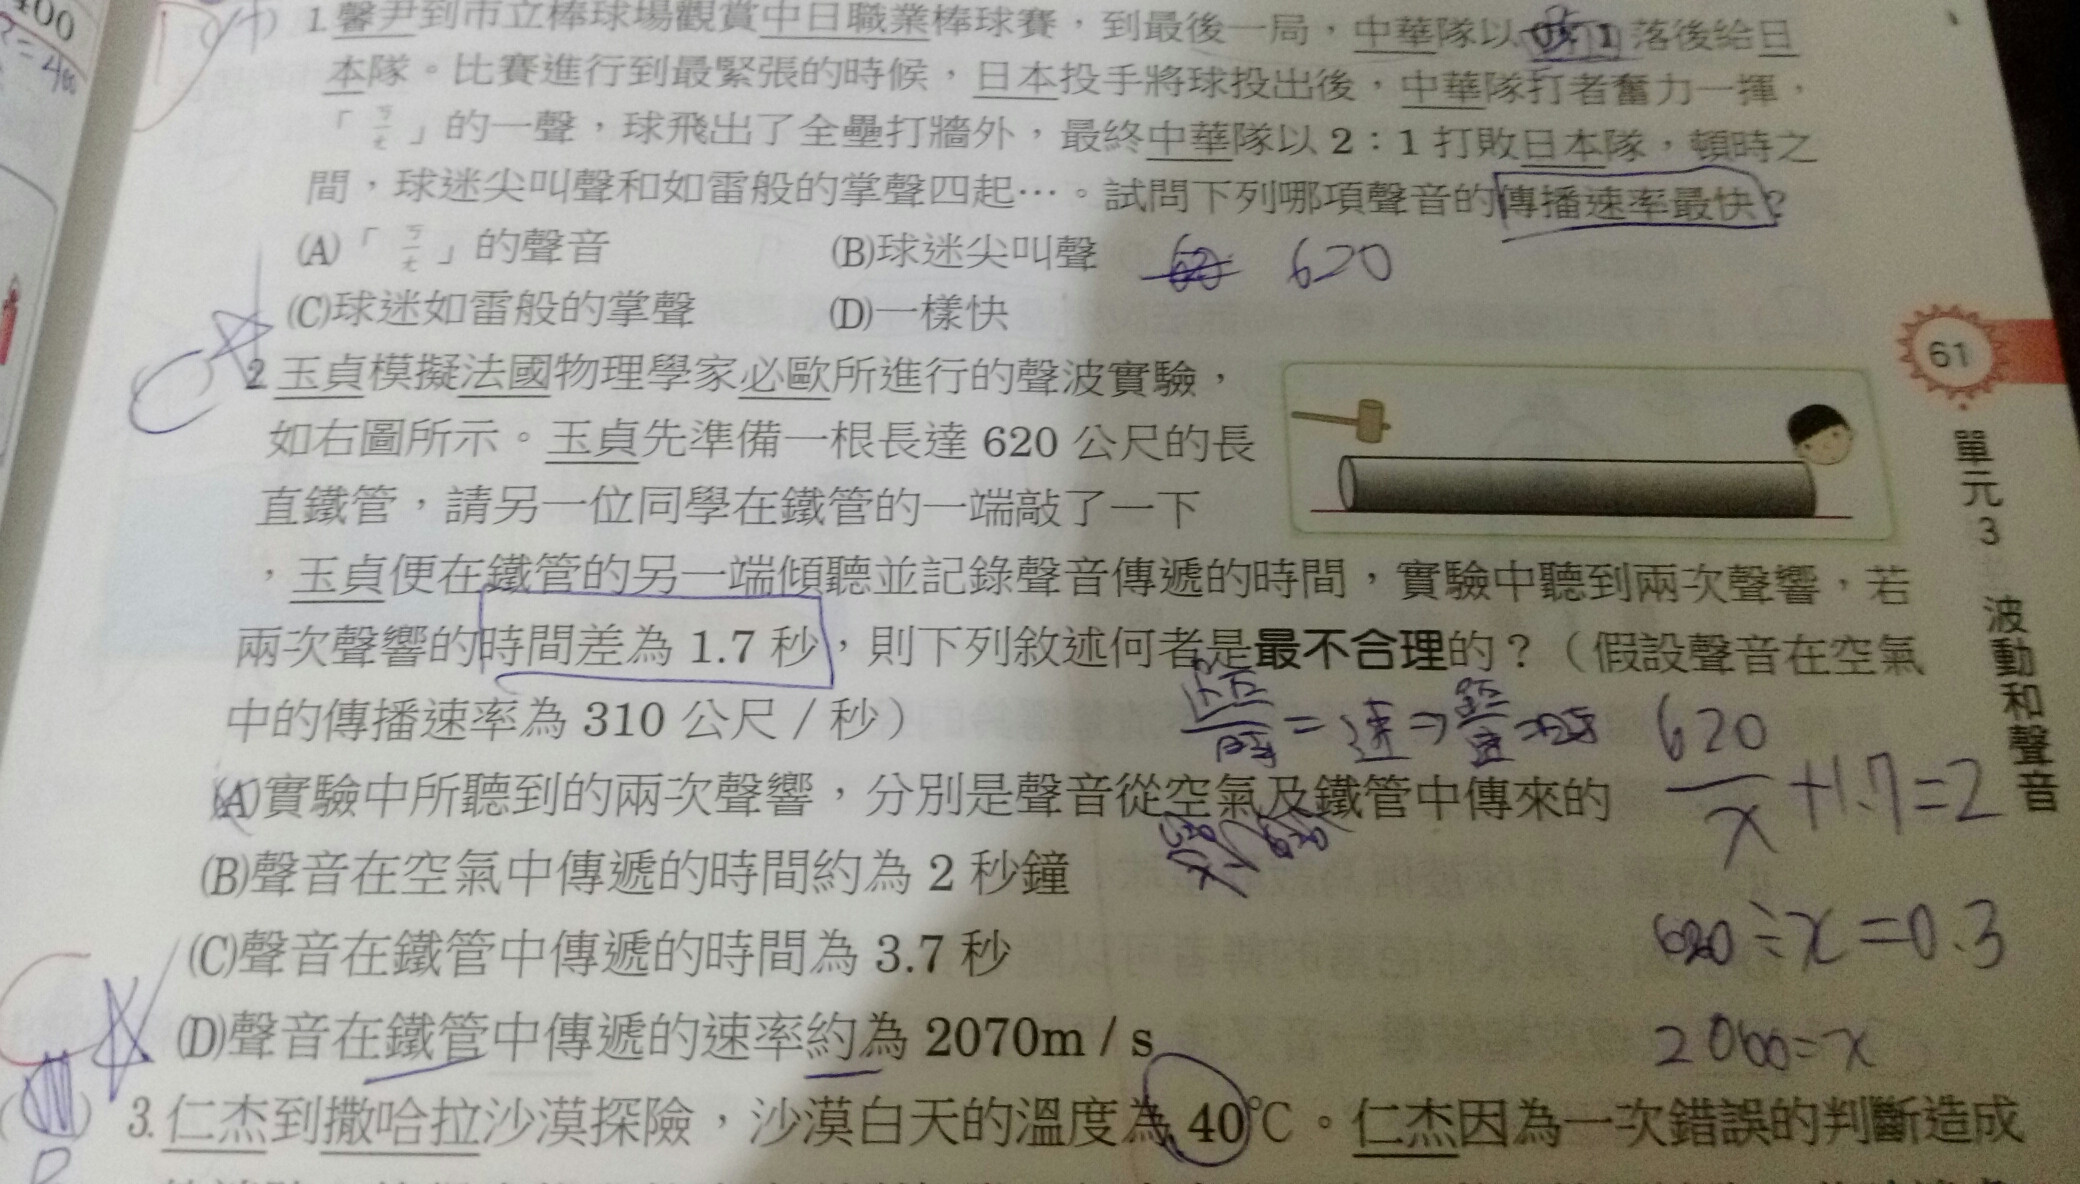 400
1.馨尹到市立棒球場觀賞中日職業棒球賽，到最後一局，中華隊以 落後給日
本隊。比賽進行到最緊張的時候，日本投手將球投出後，中華隊打者奮力一揮，
「ㄎㄧㄤ」的一聲，球飛出了全壘打牆外，最終中華隊以 2：1 打敗日本隊，頓時之
間，球迷尖叫聲和如雷般的掌聲四起…。試問下列哪項聲音的傳播速率最快？
(A)「ㄎㄧㄤ」的聲音
(B)球迷尖叫聲
620
(C)球迷如雷般的掌聲
(D)一樣快
2.玉貞模擬法國物理學家必歐所進行的聲波實驗，
如右圖所示。玉貞先準備一根長達 620 公尺的長
直鐵管，請另一位同學在鐵管的一端敲了一下
，玉貞便在鐵管的另一端傾聽並記錄聲音傳遞的時間，實驗中聽到兩次聲響，若
兩次聲響的時間差為 1.7 秒，則下列敘述何者是最不合理的？（假設聲音在空氣
中的傳播速率為 310 公尺 / 秒）
(A)實驗中所聽到的兩次聲響，分別是聲音從空氣及鐵管中傳來的
(B)聲音在空氣中傳遞的時間約為 2 秒鐘
(C)聲音在鐵管中傳遞的時間為 3.7 秒
(D)聲音在鐵管中傳遞的速率約為 2070m / s
620/x+1.7=2
620÷x=0.3
2060=x
3.仁杰到撒哈拉沙漠探險，沙漠白天的溫度為 40℃。仁杰因為一次錯誤的判斷造成
61
單元3 波動和聲音